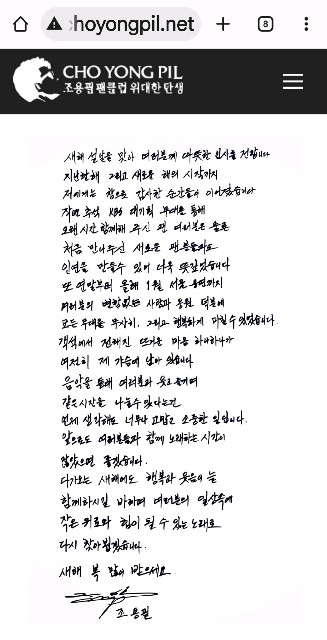 choyongpil.net
8
CHO YONG PIL
조용필 팬클럽 위대한 탄생
새해 설날을 맞아 여러분께 따뜻한 인사를 전합니다
지난한해 그리고 새로운 해의 시작까지
저에게는 참으로 감사한 순간들이 이어졌습니다
작년 추석 KBS 대기획 무대를 통해
오래 시간 함께해 주신 팬 여러분은 물론
처음 만나주신 새로운 팬분들과도
인연을 만들수 있어 더욱 뜻깊었습니다
또 연말부터 올해 1월 서울 공연까지
여러분의 변함없는 사랑과 응원 덕분에
모든 무대를 무사히, 그리고 행복하게 마칠 수 있었습니다
객석에서 전해진 뜨거운 마음 하나하나가
여전히 제 가슴에 남아 있습니다
음악을 통해 여러분과 웃고 즐기며
같은시간을 나눌수 있다는건
언제 생각해도 너무나 고맙고 소중한 일입니다.
앞으로도 여러분들과 함께 노래하는 시간이
많았으면 좋겠습니다.
다가오는 새해에도 행복과 웃음이 늘
함께하시길 바라며 여러분의 일상속에
작은 위로와 힘이 될 수 있는 노래로
다시 찾아뵙겠습니다.
새해 복 많이 받으세요
조용필